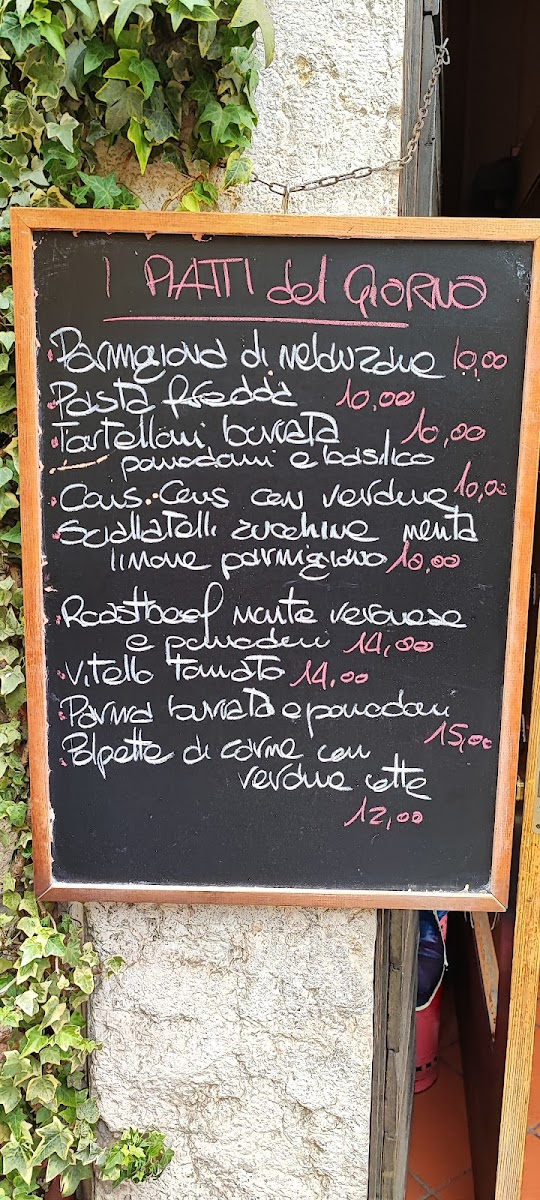 I PIATTI del GIORNO
Parmigiana di melanzane 10,00
Pasta fredda 10,00
Tortelloni burrata 10,00
pomodorini e basilico
Cous.Cous con verdure 10,00
Scialatelli zucchine menta
limone parmigiano 10,00
Roastbeef monte veronese
e pomodorini 14,00
Vitello tonnato 14,00
Parma burrata e pomodorini
15,00
Polpette di carne con
verdure cotte
12,00